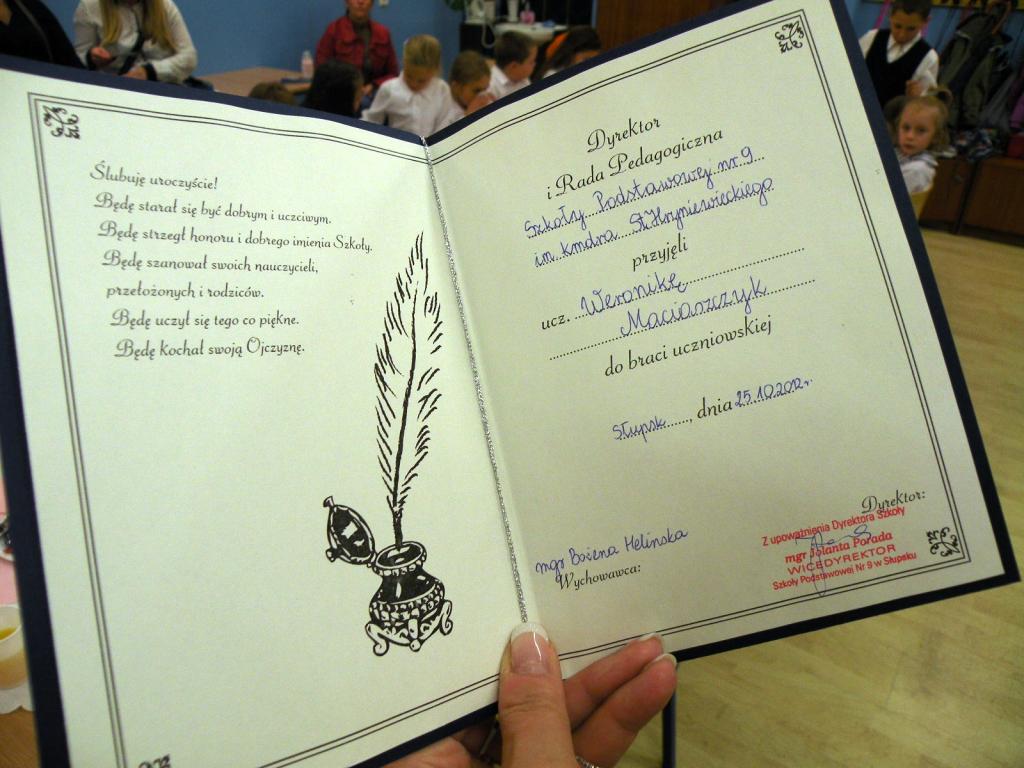 Ślubuję uroczyście!
Będę starał się być dobrym i uczciwym.
Będę strzegł honoru i dobrego imienia Szkoły.
Będę szanował swoich nauczycieli,
przełożonych i rodziców.
Będę uczył się tego co piękne.
Będę kochał swoją Ojczyznę.
Dyrektor
i Rada Pedagogiczna
Szkoły Podstawowej nr 9
im. kmdra St. Hryniewieckiego
przyjęli
ucz. Weronikę
Maciaszczyk
do braci uczniowskiej
Słupsk......, dnia 25.10.2012r.
mgr Bożena Helińska
Wychowawca:
Dyrektor:
Z upoważnienia Dyrektora Szkoły
mgr Jolanta Porada
WICEDYREKTOR
Szkoły Podstawowej Nr 9 w Słupsku